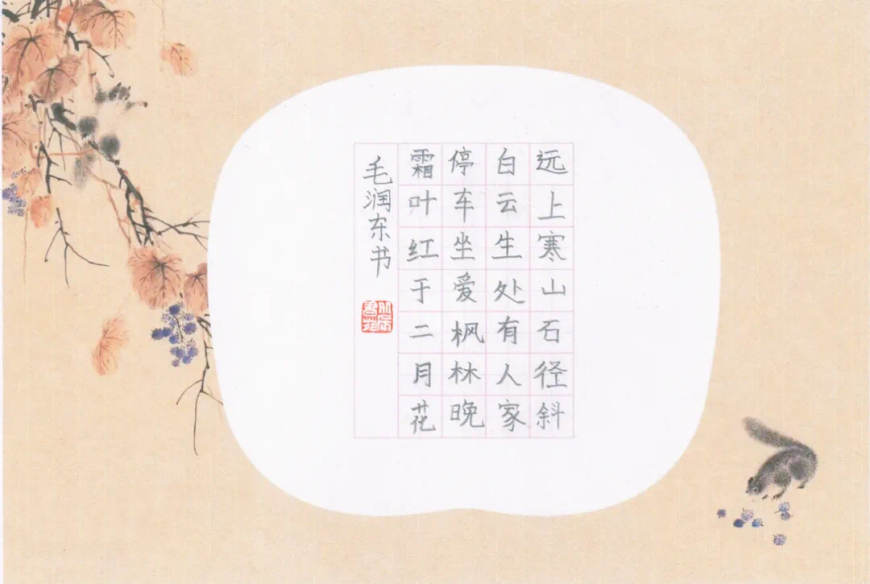 远上寒山石径斜
白云生处有人家
停车坐爱枫林晚
霜叶红于二月花
毛润东书